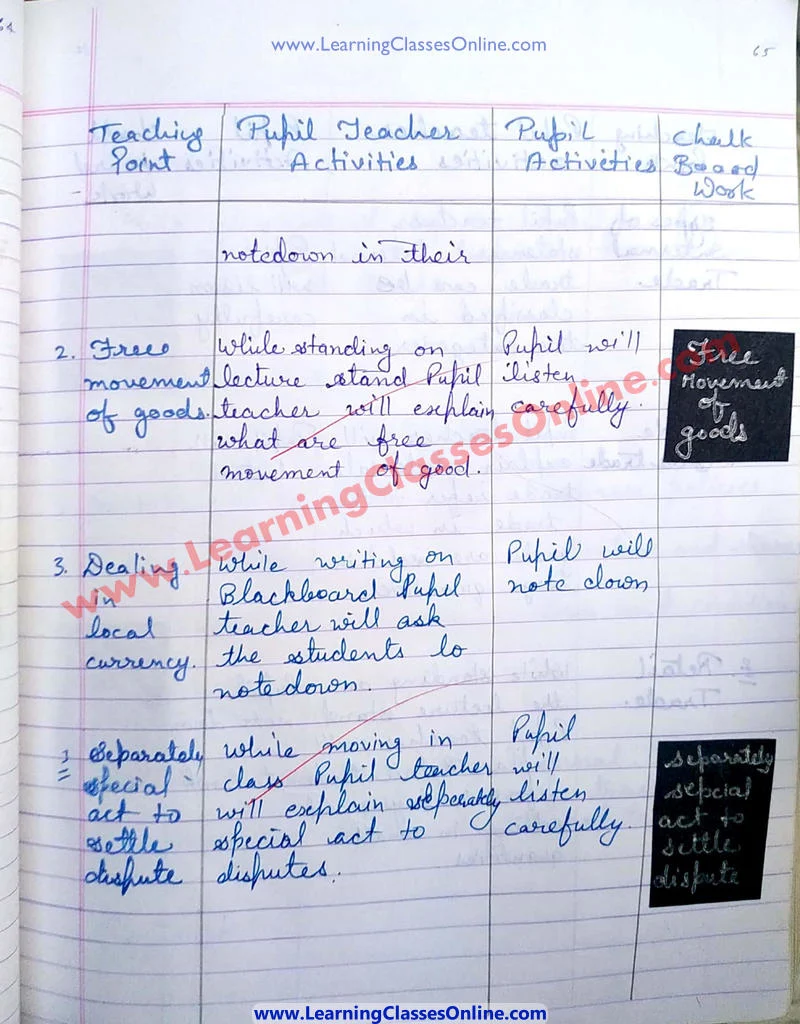 www.LearningClassesOnline.com
65
Teaching Point
Pupil Teacher Activities
Pupil Activeties
Chalk Board Work
notedown in their
2. Free
movement
of goods.
While standing on
lecture stand Pupil
teacher will explain
what are free
movement of good.
Pupil will
listen
carefully.
Free
Movement
of
goods
3. Dealing
in
local
currency.
While writing on
Blackboard Pupil
teacher will ask
the students to
notedown.
Pupil will
note down
separately
special
act to
settle
dispute
while moving in
class Pupil teacher
will explain seperately
special act to
disputes.
Pupil
will
listen
carefully.
separately
sepcial
act to
settle
dispute
www.LearningClassesOnline.com
www.LearningClassesOnline.com